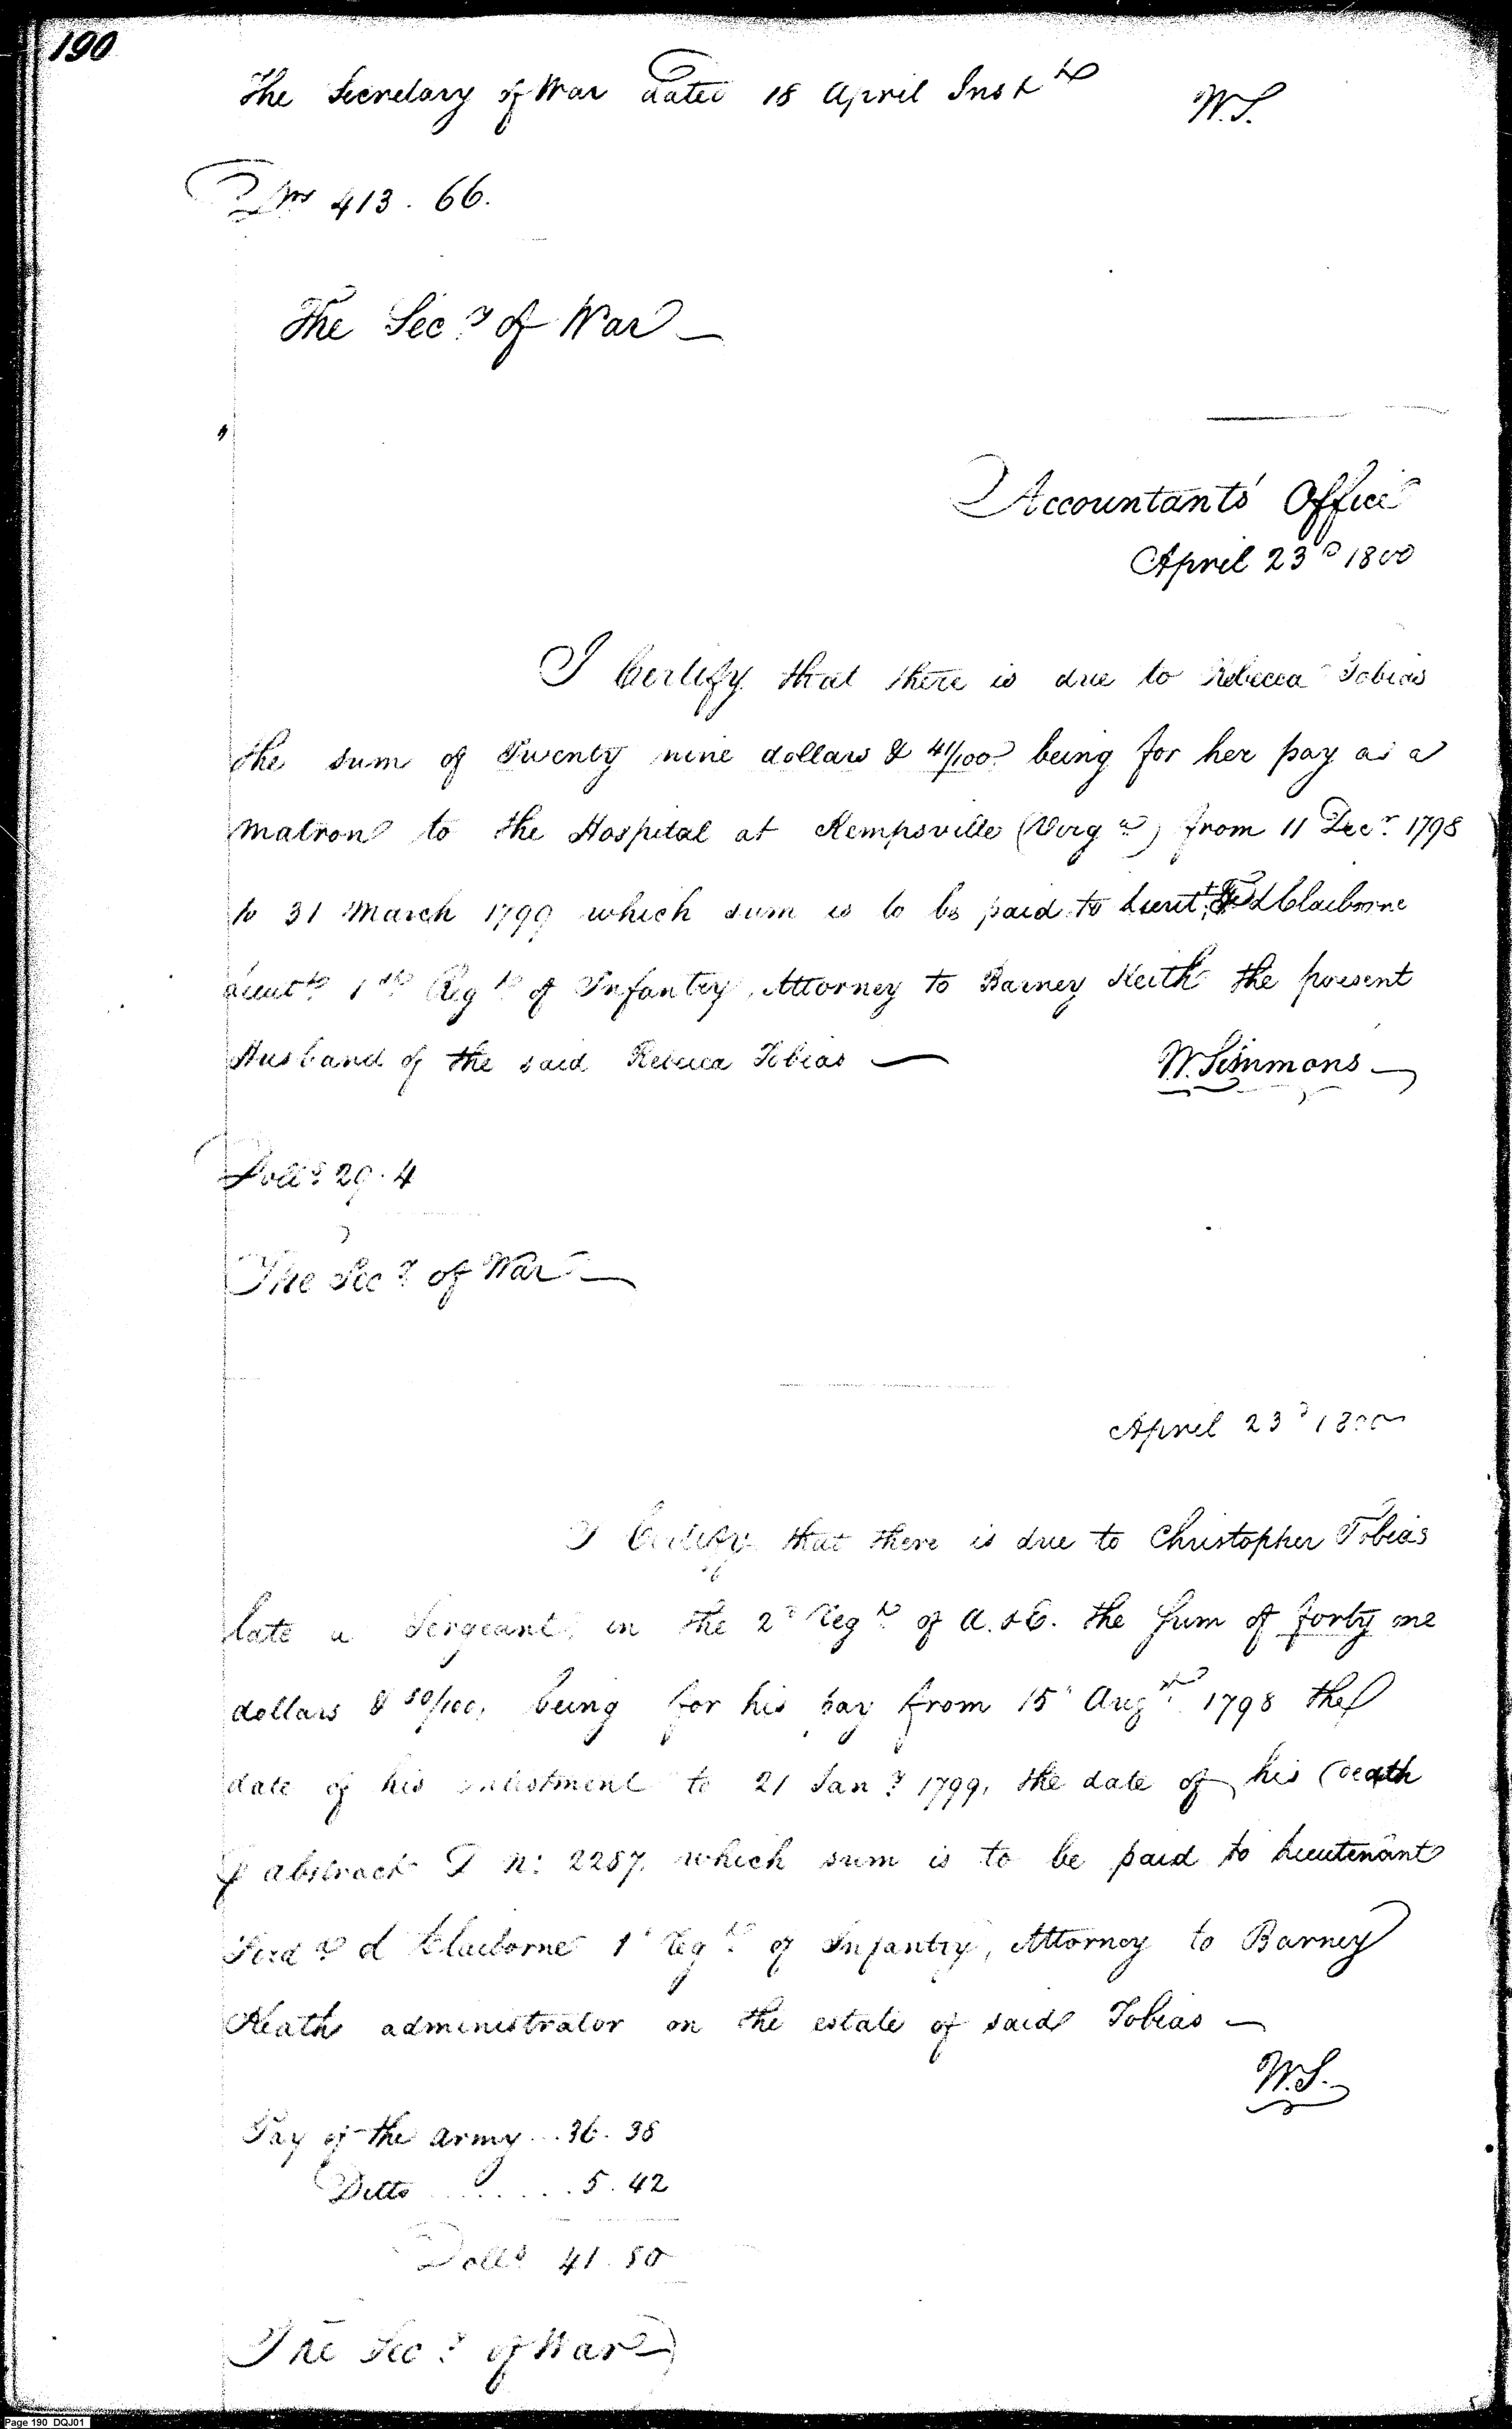 190
The Secretary of War dated 18 April Inst
W.S.
Drs 413. 66.
The Secy of War
Accountants' Office
April 23d 1800
I Certify that there is due to Rebecca Tobias
the sum of Twenty nine dollars & 41/100 being for her pay as a
Matron to the Hospital at Kempsville (Virga) from 11 Decr 1798
to 31 March 1799 which sum is to be paid to Lieut Claiborne
Lieutt 1st Regt of Infantry, Attorney to Barney Keith the present
Husband of the said Rebecca Tobias
W. Simmons
Dolls 29.4
The Secy of War
April 23d 1800
I Certify that there is due to Christopher Tobias
late a Sergeant, in the 2d Regt of A. & E. the sum of forty one
dollars & 80/100, being for his pay from 15 Augt 1798 the
date of his enlistment to 21 Jany 1799, the date of his death
abstract T n: 2287, which sum is to be paid to Lieutenant
Ferdd Claiborne 1 Regt of Infantry, Attorney to Barney
Keath administrator on the estate of said Tobias
W.S.
Pay of the army... 36. 38
Ditto ....... 5. 42
Dolls 41. 80
The Secy of War
Page 190 DQJ01